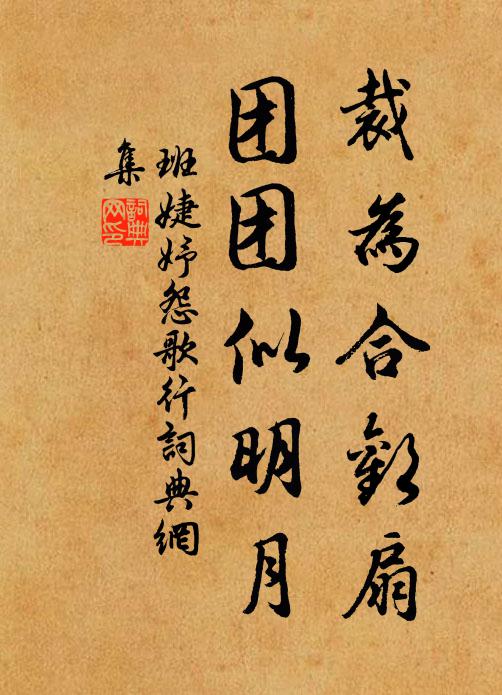 裁為合歡扇
团团似明月
班婕妤怨歌行詞典網
集
詞典
网印